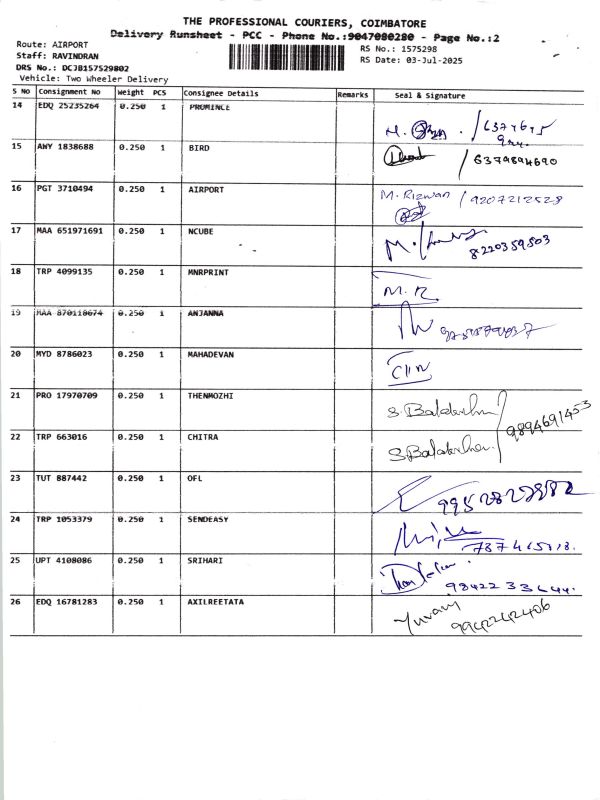 THE PROFESSIONAL COURIERS, COIMBATORE
Delivery Runsheet - PCC - Phone No.:9047080280 - Page No.:2
Route: AIRPORT
Staff: RAVINDRAN
DRS No.: DCJB157529802
Vehicle: Two Wheeler Delivery
RS No.: 1575298
RS Date: 03-Jul-2025
S No Consignment No Weight PCS Consignee Details Remarks Seal & Signature
14 EDQ 25235264 0.250 1 PROMINCE
15 AWY 1838688 0.250 1 BIRD 6379894690
16 PGT 3710494 0.250 1 AIRPORT M. Rizwan / 9207212528
17 MAA 651971691 0.250 1 NCUBE 8220359503
18 TRP 4099135 0.250 1 MNRPRINT M. R
19 MAA 870118674 0.250 1 ANJANNA
20 MYD 8786023 0.250 1 MAHADEVAN
21 PRO 17970709 0.250 1 THENMOZHI 9894691453
22 TRP 663016 0.250 1 CHITRA
23 TUT 887442 0.250 1 OFL
24 TRP 1053379 0.250 1 SENDEASY
25 UPT 4108086 0.250 1 SRIHARI
26 EDQ 16781283 0.250 1 AXILREETATA